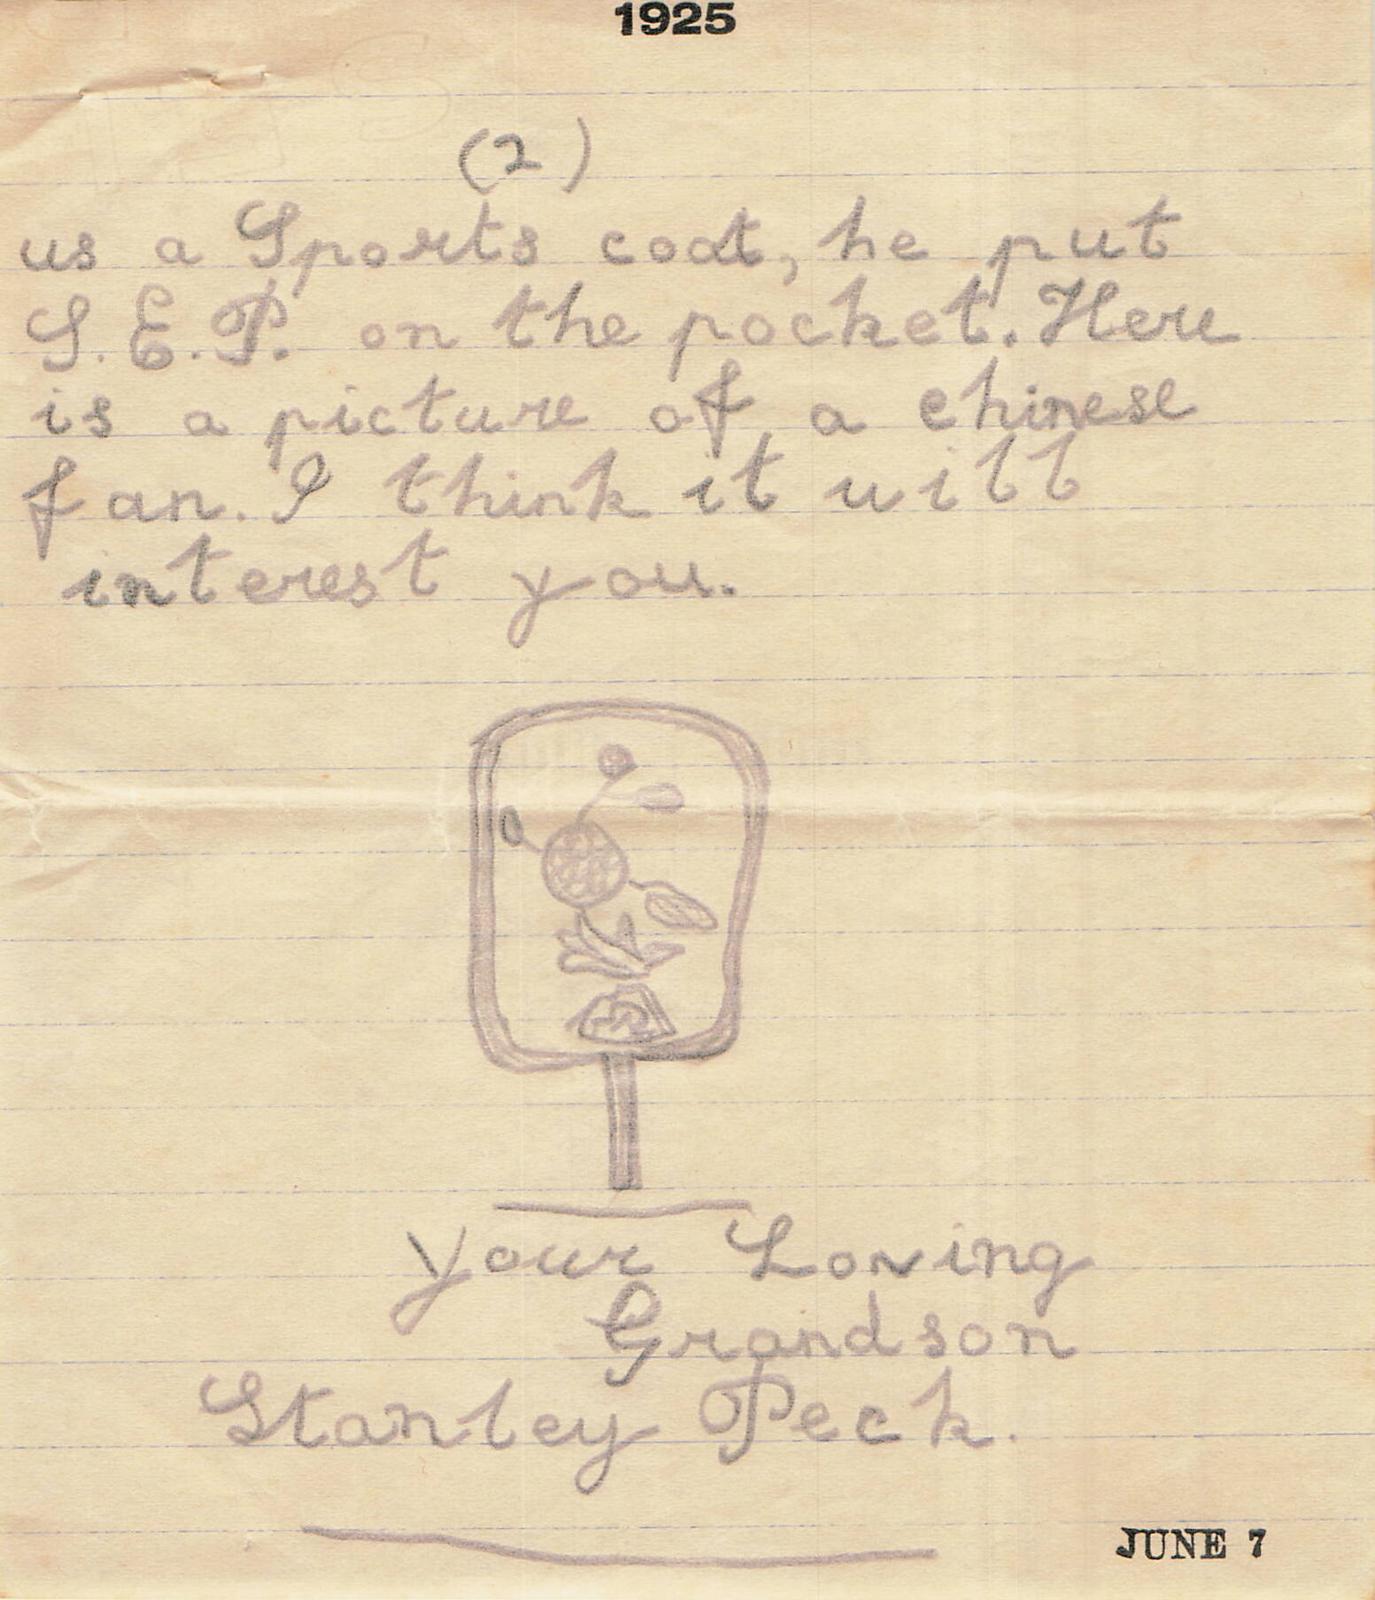 1925
(2)
us a Sports coat, he put
S.E.P. on the pocket. Here
is a picture of a chinese
fan. I think it will
interest you.
your Loving
Grandson
Stanley Peck.
JUNE 7